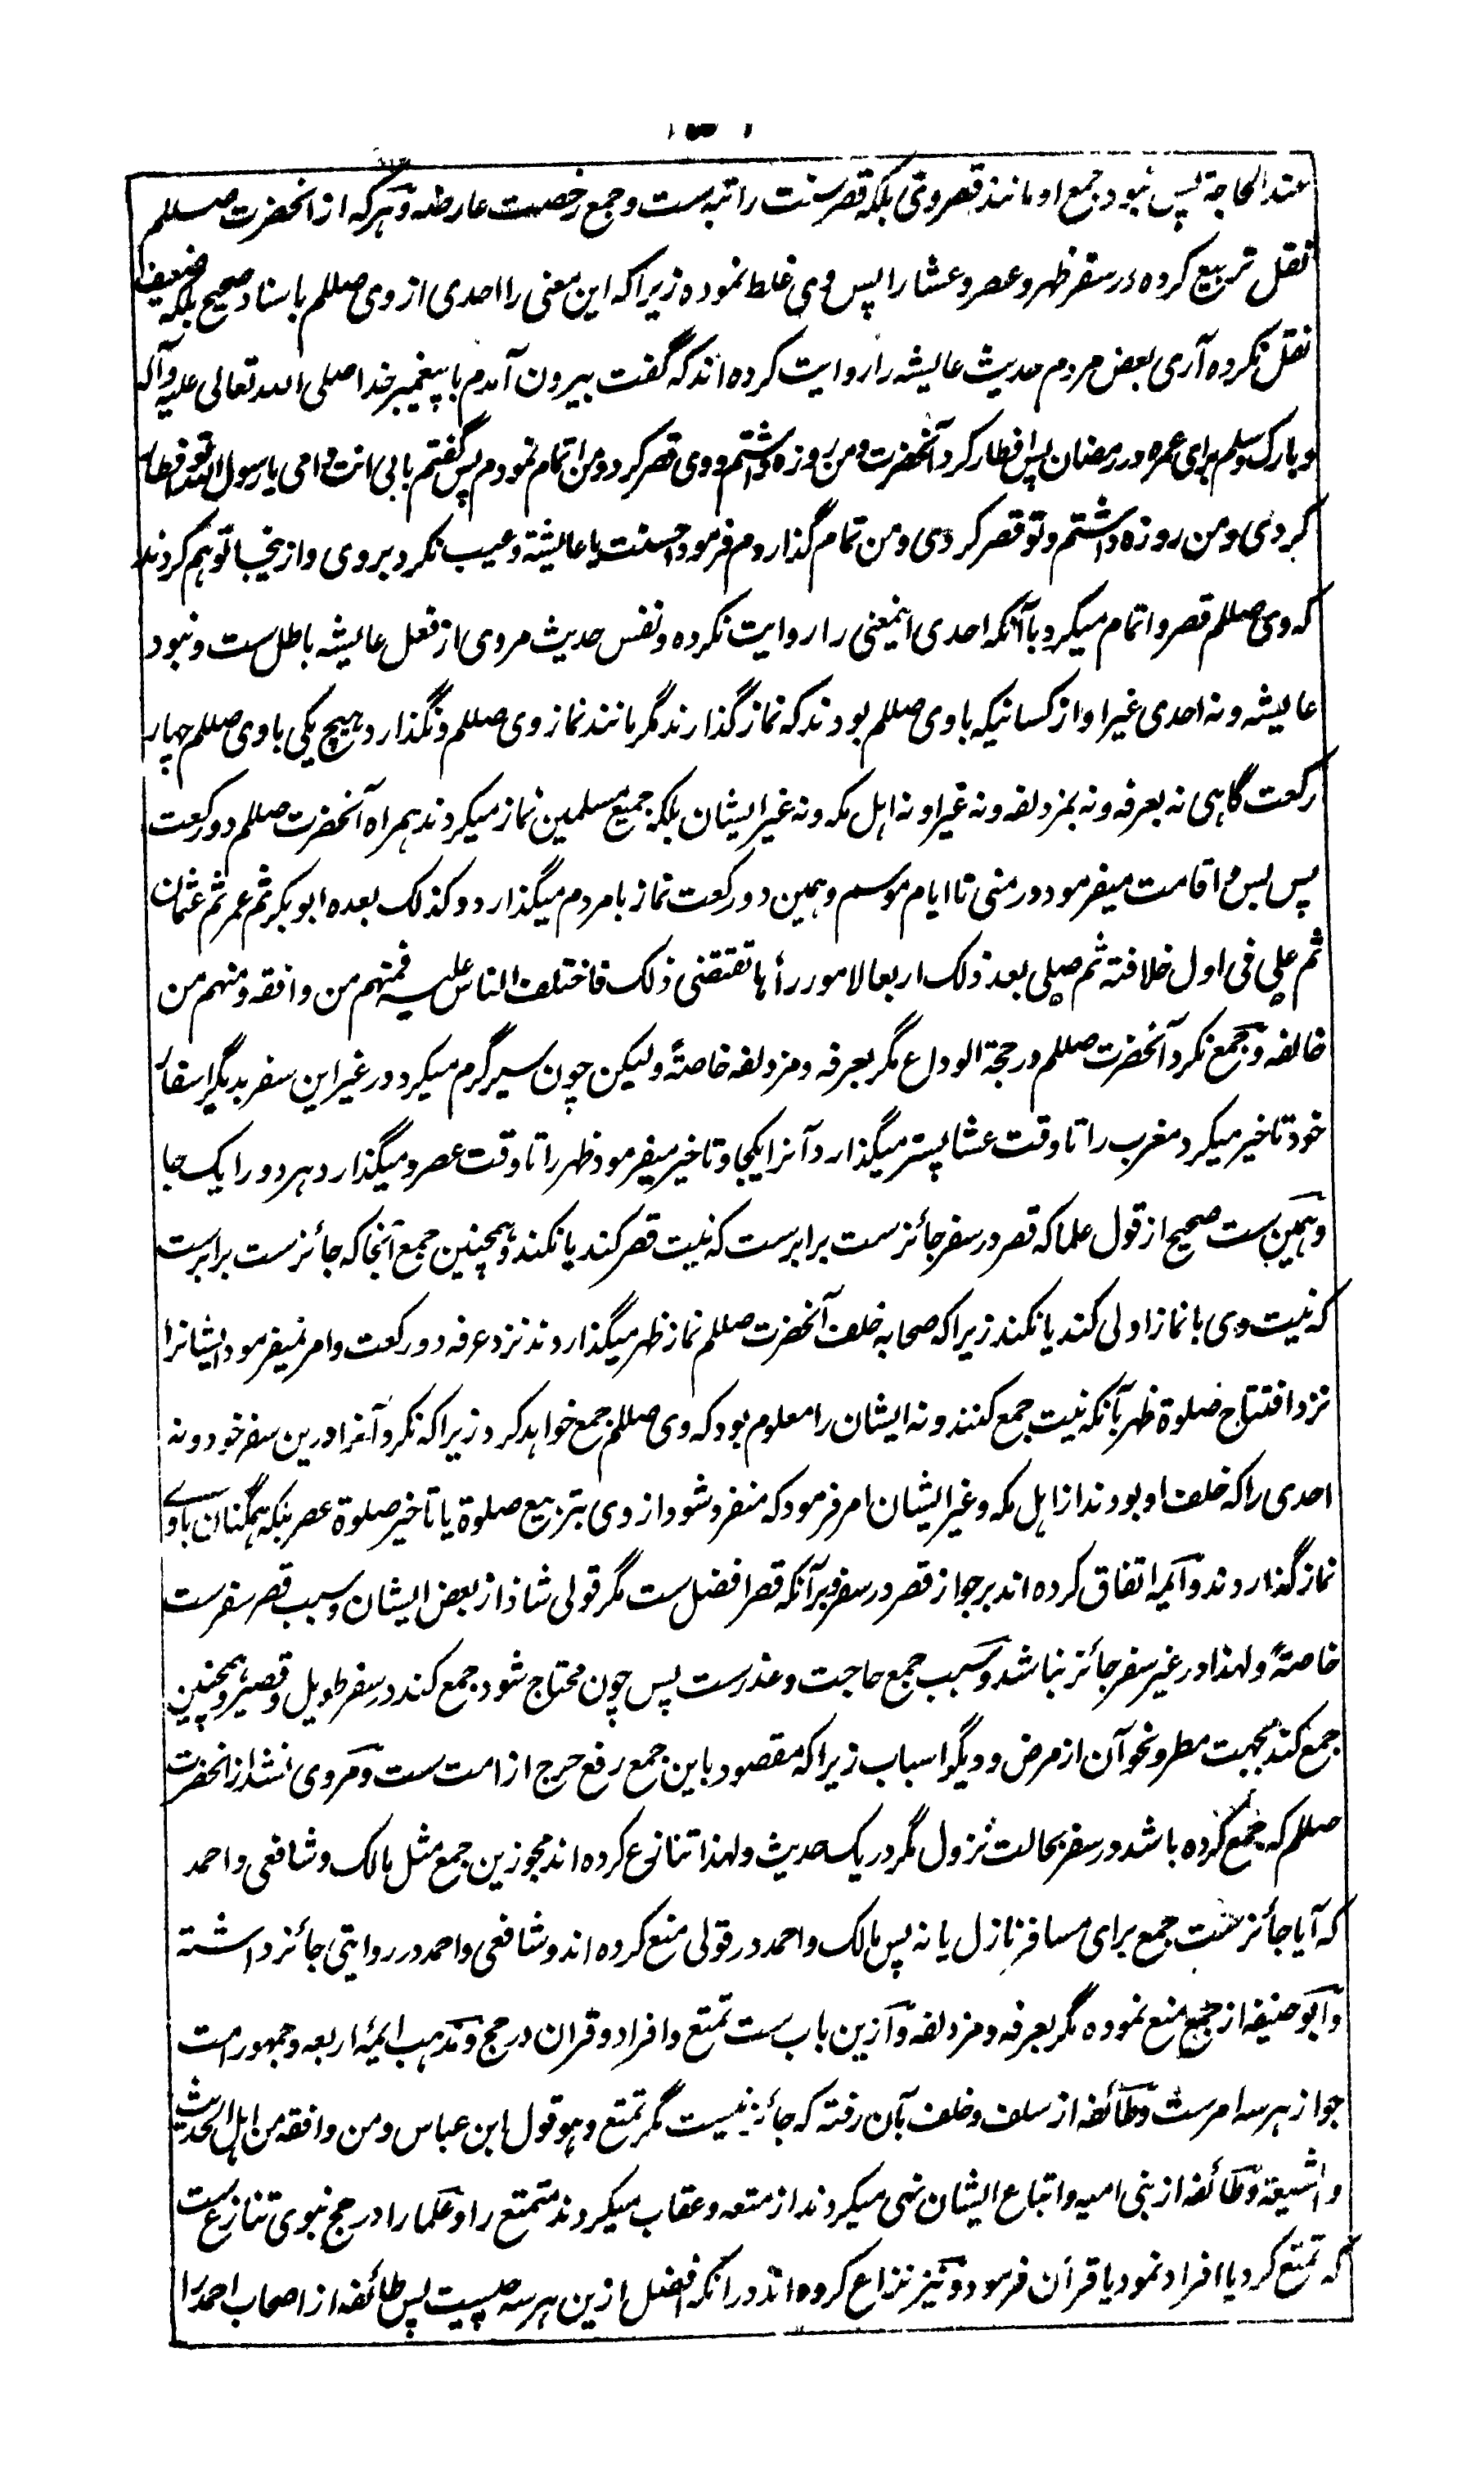 عند الحاجة پس نبود جمع او مانند قصر وی بلکه قصر سنت راتبه ست و جمع رخصت عارضه و هر که از آنحضرت صللم
نقل تربیع کرده در سفر ظهر و عصر و عشا را پس وی غلط نموده زیرا که این معنی را احدی از وی صللم باسناد صحیح بلکه ضعیف
نقل نکرده آری بعض مردم حدیث عایشه را روایت کرده اند که گفت بیرون آمدم با پیغمبر خدا صلی الله تعالی علیه وآله
وبارک وسلم برای عمره در رمضان پس افطار کرد آنحضرت و من روزه داشتم و وی قصر کرد و من اتمام نمودم پس گفتم بابی انت و امی یا رسول الله تو افطار
کردی و من روزه داشتم و تو قصر کردی و من تمام گذاردم فرمود احسنت یا عایشة و عیب نکرد بروی و ازینجا توهم کردند
که وی صللم قصر و اتمام میکرد با آنکه احدی اینمعنی را روایت نکرده و نفس حدیث مروی از فعل عایشه باطل ست و نبود
عایشه و نه احدی غیر او از کسانیکه با وی صللم بودند که نماز گذارند مگر مانند نماز وی صللم و نگذارد هیچ یکی با وی صللم چهار
رکعت گاهی نه بعرفه و نه بمزدلفه و نه غیر او نه اهل مکه و نه غیر ایشان بلکه جمیع مسلمین نماز میکردند همراه آنحضرت صللم دو رکعت
پس بس و اقامت میفرمود در منی تا ایام موسم و همین دو رکعت نماز با مردم میگذارد و کذلک بعده ابوبکر ثم عمر ثم عثمان
ثم علی فی اول خلافته ثم صلی بعد ذلک اربعا لامور رأها تقتضی ذلک فاختلف الناس علیه فمنهم من وافقه ومنهم من
خالفه و جمع نکرد آنحضرت صللم در حجة الوداع مگر بعرفه و مزدلفه خاصةً ولیکن چون سیر گرم میکرد در غیر این سفر بدیگر اسفار
خود تاخیر میکرد مغرب را تا وقت عشا پستر میگذارد آنرا یکجا و تاخیر میفرمود ظهر را تا وقت عصر و میگذارد هر دو را یک جا
و همین ست صحیح از قول علما که قصر در سفر جائز ست برابر ست که نیت قصر کند یا نکند و همچنین جمع آنجا که جائز ست برابر ست
که نیت وی با نماز اولی کند یا نکند زیرا که صحابه خلف آنحضرت صللم نماز ظهر میگذاردند نزد عرفه دو رکعت و امر نمیفرمود ایشانرا
نزد افتتاح صلوة ظهر بآنکه نیت جمع کنند و نه ایشان را معلوم بود که وی صللم جمع خواهد کرد زیرا که نکرد آنرا درین سفر خود و نه
احدی را که خلف او بودند از اهل مکه و غیر ایشان امر فرمود که منفرد شود از وی بتربیع صلوة یا تاخیر صلوة عصر بلکه همگنان با وے
نماز گذاردند و ائمه اتفاق کرده اند بر جواز قصر در سفر و برآنکه قصر افضل ست مگر قولی شاذ از بعض ایشان و سبب قصر سفر ست
خاصةً و لهذا در غیر سفر جائز نباشد و سبب جمع حاجت و عذر ست پس چون محتاج شود جمع کند در سفر طویل و قصیر و همچنین
جمع کند بجهت مطر و نحو آن از مرض و دیگر اسباب زیرا که مقصود باین جمع رفع حرج از امت ست و مروی نشد از آنحضرت
صللم که جمع کرده باشد در سفر بحالت نزول مگر در یک حدیث و لهذا تنازع کرده اند مجوزین جمع مثل مالک و شافعی و احمد
که آیا جائز ست جمع برای مسافر نازل یا نه پس مالک و احمد در قولی منع کرده اند و شافعی و احمد در روایتی جائز داشته
و ابو حنیفه از جمع منع نموده مگر بعرفه و مزدلفه و ازین باب ست تمتع و افراد و قران در حج و مذهب ایمهٔ اربعه و جمهور امت
جواز هر سه امر ست و طائفه از سلف و خلف بآن رفته که جائز نیست مگر تمتع و هو قول ابن عباس و من وافقه من اهل الحدیث
و الشیعة و طائفه از بنی امیه و اتباع ایشان نهی میکردند از متعه و عقاب میکردند متمتع را و علما را در حج نبوی تنازع ست
که تمتع کرد یا افراد نمود یا قران فرمود و نیز نزاع کرده اند در آنکه افضل ازین هر سه چیست پس طائفه از اصحاب احمد را